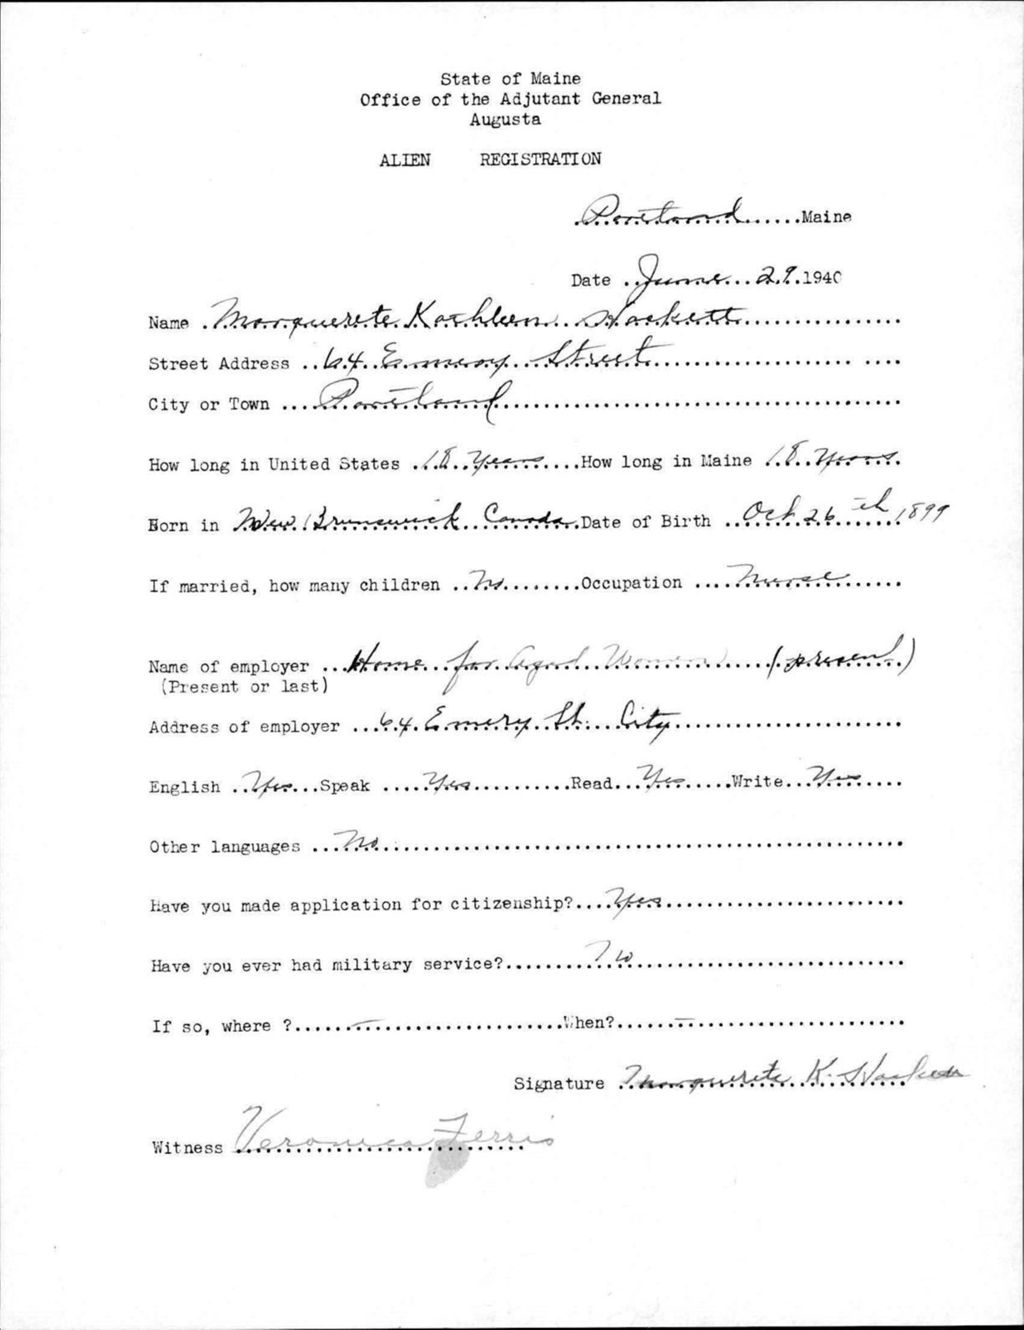 State of Maine
Office of the Adjutant General
Augusta
ALIEN REGISTRATION
Portland Maine
Date June 29 1940
Name Marquerete Kathleen Hackett
Street Address 64 Emery Street
City or Town Portland
How long in United States 18 Years How long in Maine 18 Years
Born in New Brunswick Canada Date of Birth Oct 26th 1899
If married, how many children No Occupation Nurse
Name of employer Home for Aged Women (present)
(Present or last)
Address of employer 64 Emery St. City
English Yes Speak Yes Read Yes Write Yes
Other languages No
Have you made application for citizenship? Yes
Have you ever had military service? No
If so, where ? — When? —
Signature Marquerete K. Hackett
Witness Veronica Ferris